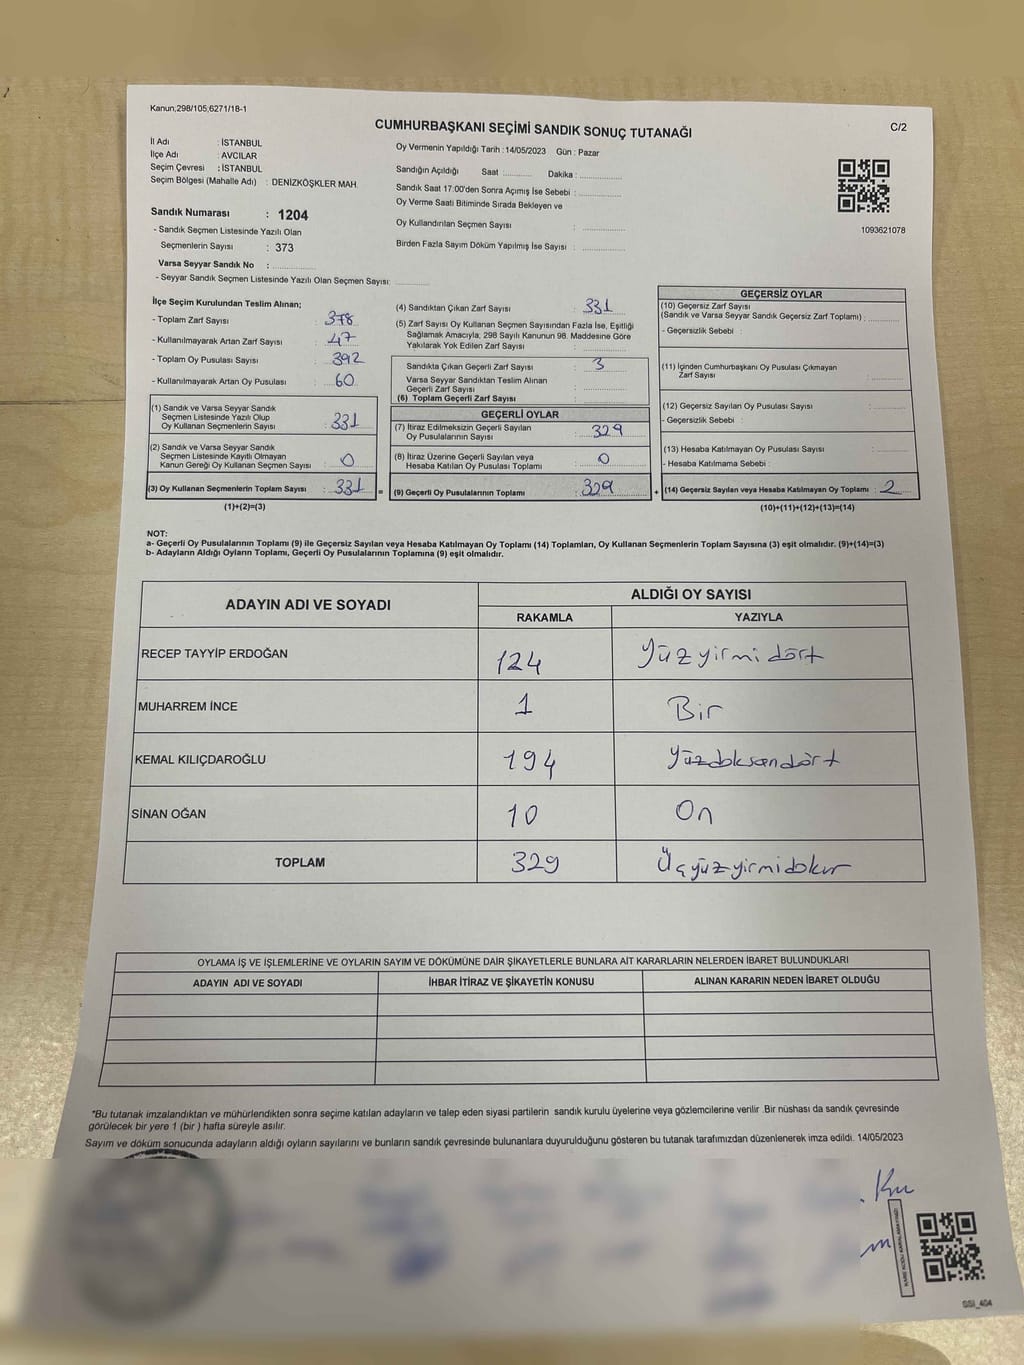 Kanun,298/105;6271/18-1
CUMHURBAŞKANI SEÇİMİ SANDIK SONUÇ TUTANAĞI
C/2
İl Adı : İSTANBUL
İlçe Adı : AVCILAR
Seçim Çevresi : İSTANBUL
Seçim Bölgesi (Mahalle Adı) : DENİZKÖŞKLER MAH.
Sandık Numarası : 1204
- Sandık Seçmen Listesinde Yazılı Olan
Seçmenlerin Sayısı : 373
Varsa Seyyar Sandık No :
- Seyyar Sandık Seçmen Listesinde Yazılı Olan Seçmen Sayısı:
Oy Vermenin Yapıldığı Tarih : 14/05/2023 Gün : Pazar
Sandığın Açıldığı Saat Dakika :
Sandık Saat 17.00'den Sonra Açılmış İse Sebebi :
Oy Verme Saati Bitiminde Sırada Bekleyen ve
Oy Kullandırılan Seçmen Sayısı :
Birden Fazla Sayım Döküm Yapılmış İse Sayısı :
1093621078
İlçe Seçim Kurulundan Teslim Alınan;
- Toplam Zarf Sayısı : 378
- Kullanılmayarak Artan Zarf Sayısı : 47
- Toplam Oy Pusulası Sayısı : 392
- Kullanılmayarak Artan Oy Pusulası : 60
(1) Sandık ve Varsa Seyyar Sandık
Seçmen Listesinde Yazılı Olup
Oy Kullanan Seçmenlerin Sayısı : 331
(2) Sandık ve Varsa Seyyar Sandık
Seçmen Listesinde Kayıtlı Olmayan
Kanun Gereği Oy Kullanan Seçmen Sayısı : 0
(3) Oy Kullanan Seçmenlerin Toplam Sayısı : 331 =
(1)+(2)=(3)
(4) Sandıktan Çıkan Zarf Sayısı : 331
(5) Zarf Sayısı Oy Kullanan Seçmen Sayısından Fazla İse, Eşitliği
Sağlamak Amacıyla, 298 Sayılı Kanunun 98. Maddesine Göre
Yakılarak Yok Edilen Zarf Sayısı :
Sandıkta Çıkan Geçerli Zarf Sayısı : 3
Varsa Seyyar Sandıktan Teslim Alınan
Geçerli Zarf Sayısı :
(6) Toplam Geçerli Zarf Sayısı :
GEÇERLİ OYLAR
(7) İtiraz Edilmeksizin Geçerli Sayılan
Oy Pusulalarının Sayısı : 329
(8) İtiraz Üzerine Geçerli Sayılan veya
Hesaba Katılan Oy Pusulası Toplamı : 0
(9) Geçerli Oy Pusulalarının Toplamı : 329 +
GEÇERSİZ OYLAR
(10) Geçersiz Zarf Sayısı
(Sandık ve Varsa Seyyar Sandık Geçersiz Zarf Toplamı) :
- Geçersizlik Sebebi :
(11) İçinden Cumhurbaşkanı Oy Pusulası Çıkmayan
Zarf Sayısı :
(12) Geçersiz Sayılan Oy Pusulası Sayısı :
- Geçersizlik Sebebi :
(13) Hesaba Katılmayan Oy Pusulası Sayısı :
- Hesaba Katılmama Sebebi :
(14) Geçersiz Sayılan veya Hesaba Katılmayan Oy Toplamı : 2
(10)+(11)+(12)+(13)=(14)
NOT:
a- Geçerli Oy Pusulalarının Toplamı (9) ile Geçersiz Sayılan veya Hesaba Katılmayan Oy Toplamı (14) Toplamları, Oy Kullanan Seçmenlerin Toplam Sayısına (3) eşit olmalıdır. (9)+(14)=(3)
b- Adayların Aldığı Oyların Toplamı, Geçerli Oy Pusulalarının Toplamına (9) eşit olmalıdır.
ADAYIN ADI VE SOYADI
ALDIĞI OY SAYISI
RAKAMLA YAZIYLA
RECEP TAYYİP ERDOĞAN 124 Yüzyirmidört
MUHARREM İNCE 1 Bir
KEMAL KILIÇDAROĞLU 194 Yüzdoksandört
SİNAN OĞAN 10 On
TOPLAM 329 Üçyüzyirmidokuz
OYLAMA İŞ VE İŞLEMLERİNE VE OYLARIN SAYIM VE DÖKÜMÜNE DAİR ŞİKAYETLERLE BUNLARA AİT KARARLARIN NELERDEN İBARET BULUNDUKLARI
ADAYIN ADI VE SOYADI İHBAR İTİRAZ VE ŞİKAYETİN KONUSU ALINAN KARARIN NEDEN İBARET OLDUĞU
*Bu tutanak imzalandıktan ve mühürlendikten sonra seçime katılan adayların ve talep eden siyasi partilerin sandık kurulu üyelerine veya gözlemcilerine verilir .Bir nüshası da sandık çevresinde
görülecek bir yere 1 (bir ) hafta süreyle asılır.
Sayım ve döküm sonucunda adayların aldığı oyların sayılarını ve bunların sandık çevresinde bulunanlara duyurulduğunu gösteren bu tutanak tarafımızdan düzenlenerek imza edildi. 14/05/2023
SSİ_404